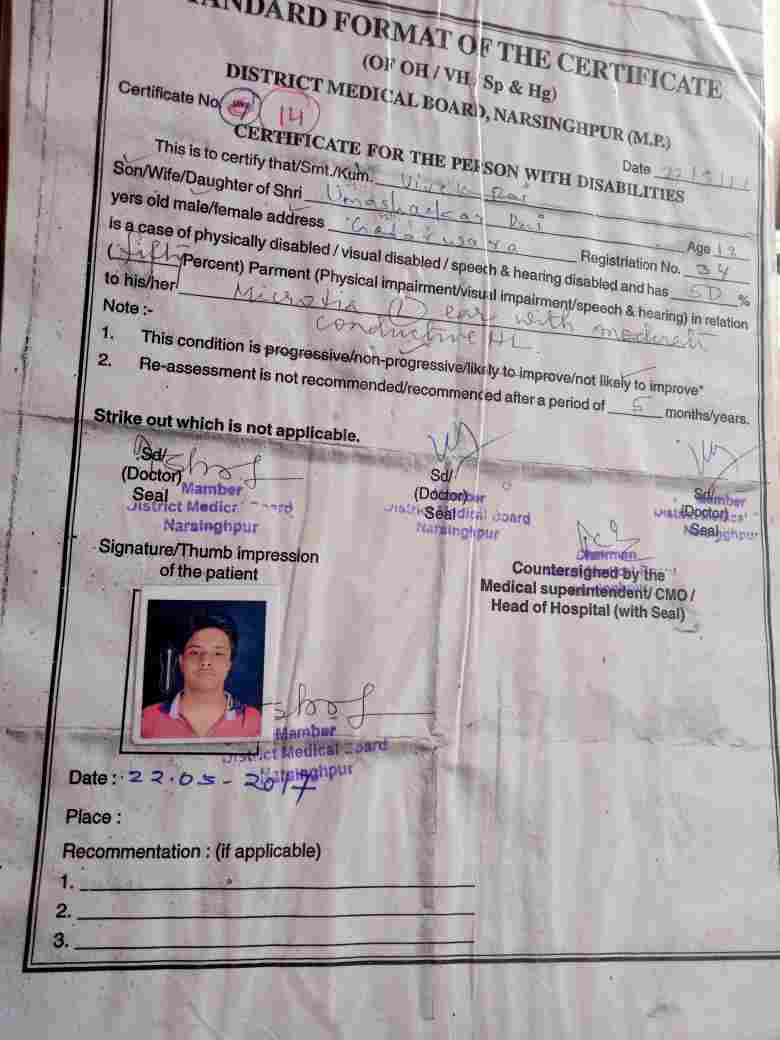 STANDARD FORMAT OF THE CERTIFICATE
(OF OH / VH, Sp & Hg)
DISTRICT MEDICAL BOARD, NARSINGHPUR (M.P.)
Certificate No. 14
CERTIFICATE FOR THE PERSON WITH DISABILITIES
Date
This is to certify that/Smt./Kum. Vivek Rai
Son/Wife/Daughter of Shri Umashankar Age 12
yers old male/female address Registriation No. 34
is a case of physically disabled / visual disabled / speech & hearing disabled and has 50 %
(fifty Percent) Parment (Physical impairment/visual impairment/speech & hearing) in relation
to his/her Microtia (L) ear with moderate
conductive HL
Note :-
1. This condition is progressive/non-progressive/likely to improve/not likely to improve*
2. Re-assessment is not recommended/recommenced after a period of 5 months/years.
Strike out which is not applicable.
Sd/ Sd/ Sd/
(Doctor) (Doctor) (Doctor)
Seal Seal Seal
Mamber
District Medical Board
Narsinghpur
District Medical Board
Narsinghpur
Mamber
Narsinghpur
Signature/Thumb impression
of the patient
Chairman
Countersigned by the
Medical superintendent/ CMO /
Head of Hospital (with Seal)
Mamber
District Medical Board
Narsinghpur
Date : 22.05-2017
Place :
Recommentation : (if applicable)
1.
2.
3.